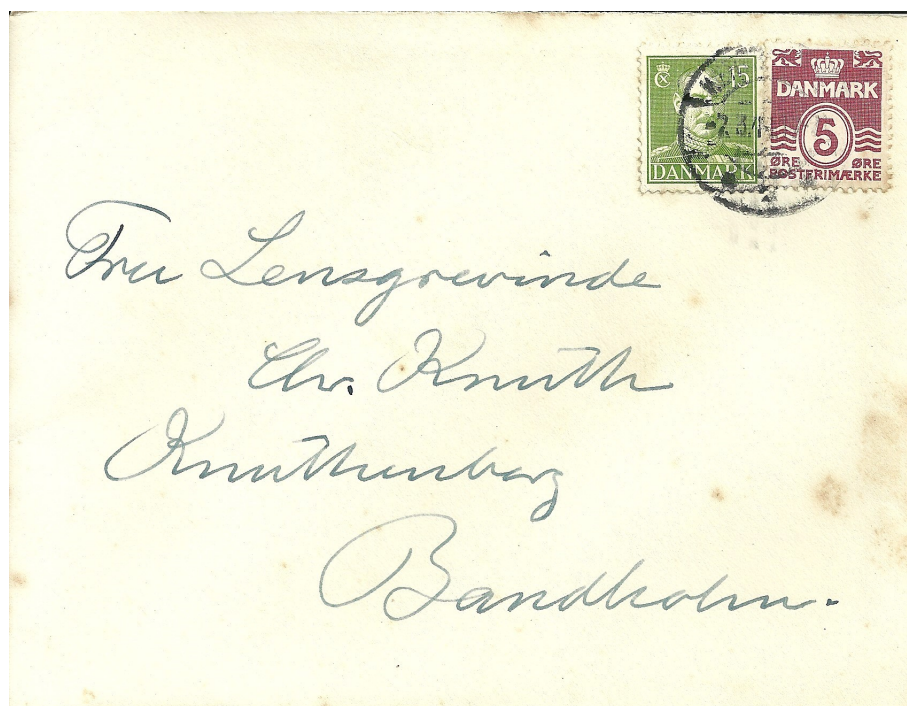 15
DANMARK
DANMARK
5
ØRE ØRE
POSTFRIMÆRKE
Fru Lensgrevinde
Chr. Knuth
Knuthenborg
Bandholm.